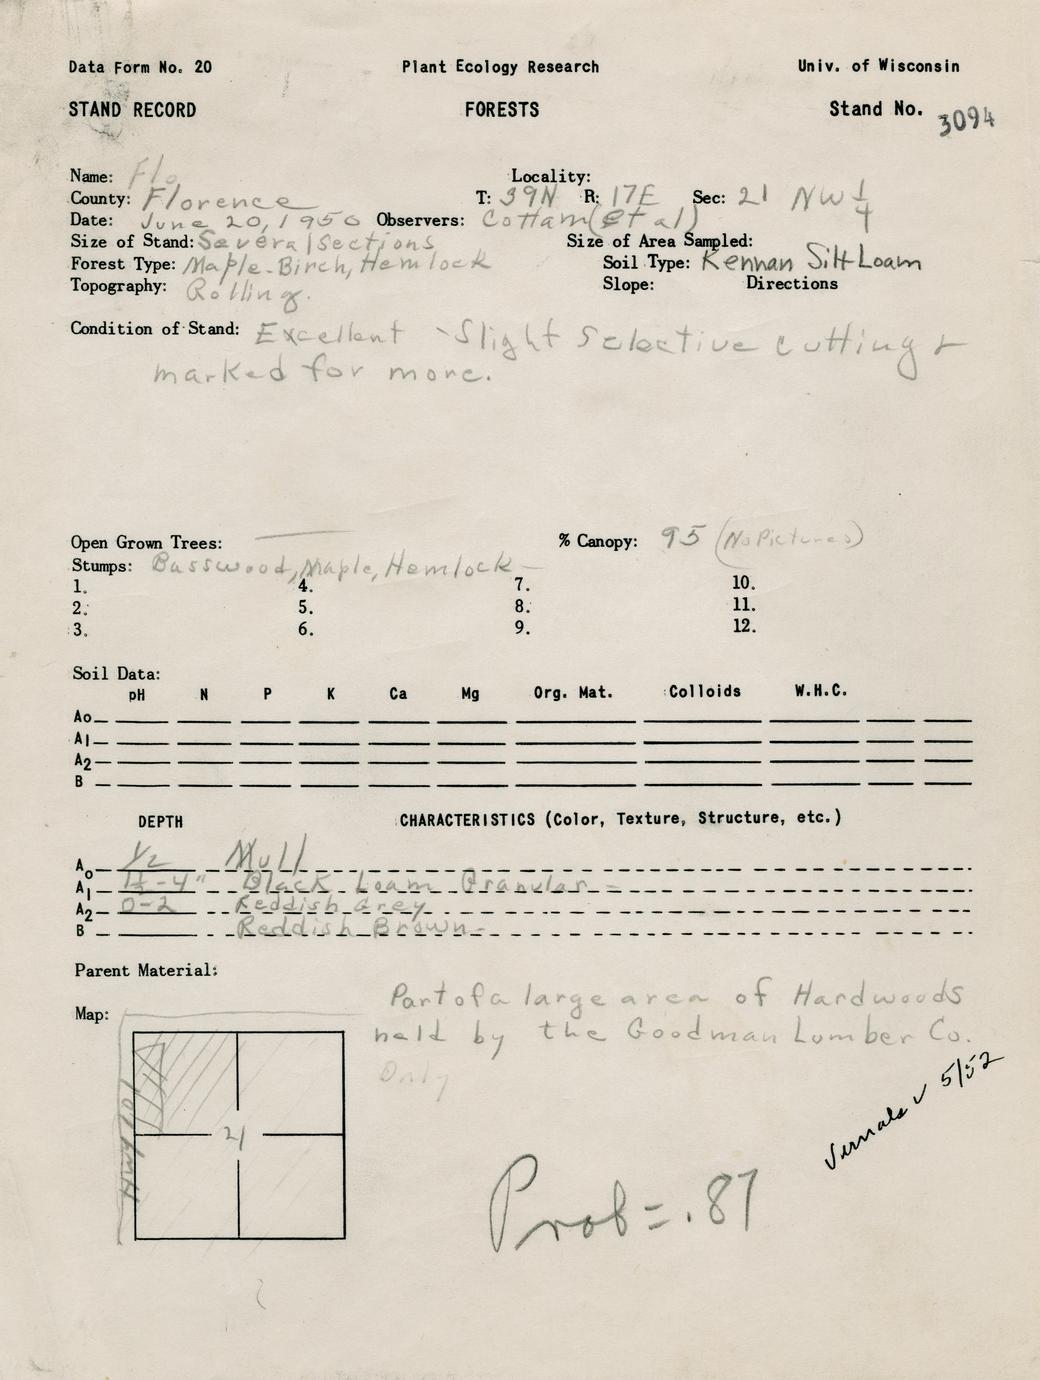 Data Form No. 20 Plant Ecology Research Univ. of Wisconsin
STAND RECORD FORESTS Stand No. 3094
Name: Flo Locality:
County: Florence T: 39N R: 17E Sec: 21 NW 1/4
Date: June 20, 1950 Observers: Cottam (et al)
Size of Stand: Several Sections Size of Area Sampled:
Forest Type: Maple-Birch, Hemlock Soil Type: Kennan Silt Loam
Topography: Rolling. Slope: Directions
Condition of Stand: Excellent - Slight Selective cutting &
marked for more.
Open Grown Trees: — % Canopy: 95 (No Pictures)
Stumps: Basswood, Maple, Hemlock -
1. 4. 7. 10.
2. 5. 8. 11.
3. 6. 9. 12.
Soil Data:
pH N P K Ca Mg Org. Mat. Colloids W.H.C.
Ao
A1
A2
B
DEPTH CHARACTERISTICS (Color, Texture, Structure, etc.)
Ao 1/2 Mull
A1 1 1/2-4" Black Loam Granular -
A2 0-2 Reddish Grey
B Reddish Brown -
Parent Material:
Part of a large area of Hardwoods
Map: held by the Goodman Lumber Co.
Only
21
Hwy 101
Vernals ✓ 5/52
Prob = .87